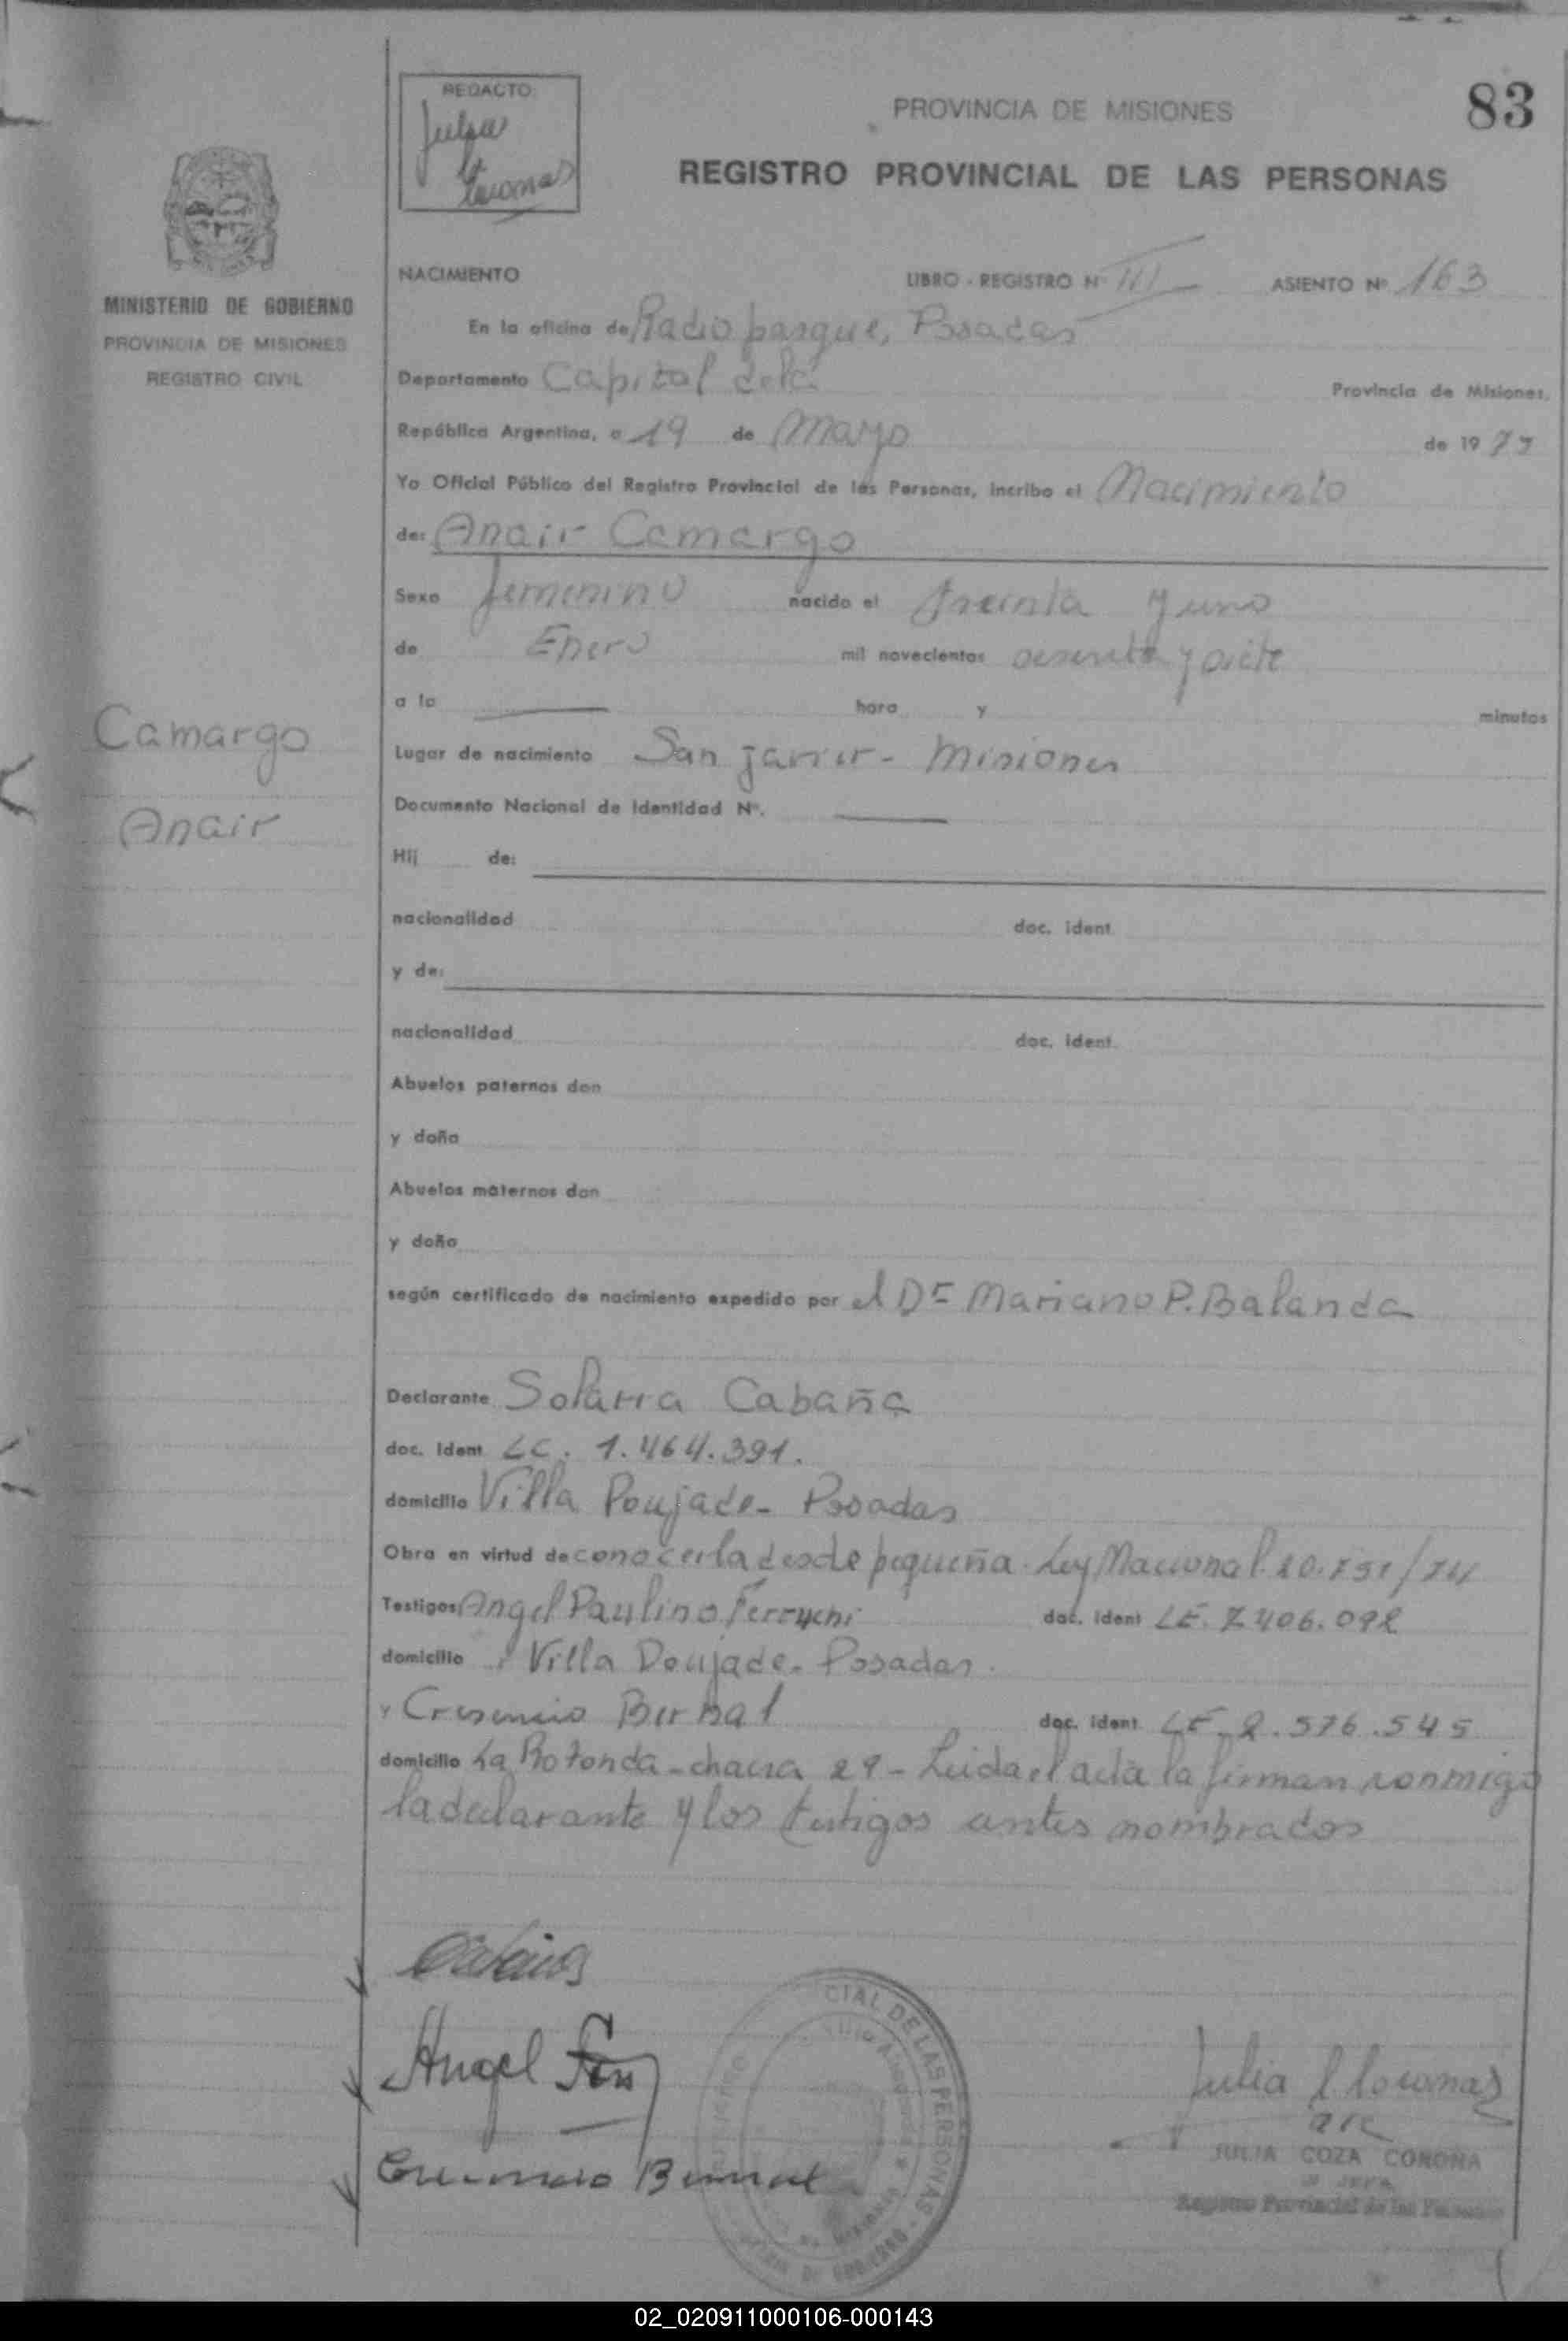 83
REDACTO:
Julia
Coronas
PROVINCIA DE MISIONES
REGISTRO PROVINCIAL DE LAS PERSONAS
MINISTERIO DE GOBIERNO
PROVINCIA DE MISIONES
REGISTRO CIVIL
NACIMIENTO LIBRO - REGISTRO Nº III ASIENTO Nº 163
En la oficina de Radio parque, Posadas
Departamento Capital de la Provincia de Misiones,
República Argentina, a 19 de Mayo de 1977
Yo Oficial Público del Registro Provincial de las Personas, incribo el Nacimiento
de: Anair Camargo
Sexo femenino nacido el treinta y uno
de Enero mil novecientos sesenta y siete
a la hora y minutos
Camargo
Anair
Lugar de nacimiento San Javier - Misiones
Documento Nacional de Identidad Nº.
Hij de:
nacionalidad doc. ident.
y de:
nacionalidad doc. ident.
Abuelos paternos don
y doña
Abuelos maternos don
y doña
según certificado de nacimiento expedido por el Dr Mariano P. Balanda
Declarante Solaria Cabaña
doc. ident. LC. 1.464.391.
domicilio Villa Poujade - Posadas
Obra en virtud de conocerla desde pequeña. Ley Nacional 20.751/74
Testigos Angel Paulino Ferreychi doc. ident LE. 7.406.092
domicilio Villa Poujade - Posadas.
y Cresencio Bernal doc. ident. LE. 2.576.545
domicilio La Rotonda - chacra 29 - Leida el acta la firman conmigo
la declarante y los testigos antes nombrados
Angel
Bernal
CIAL DE LAS PERSONAS
Julia
JULIA COZA CORONA
JEFA
Registro Provincial de las Personas
02_020911000106-000143